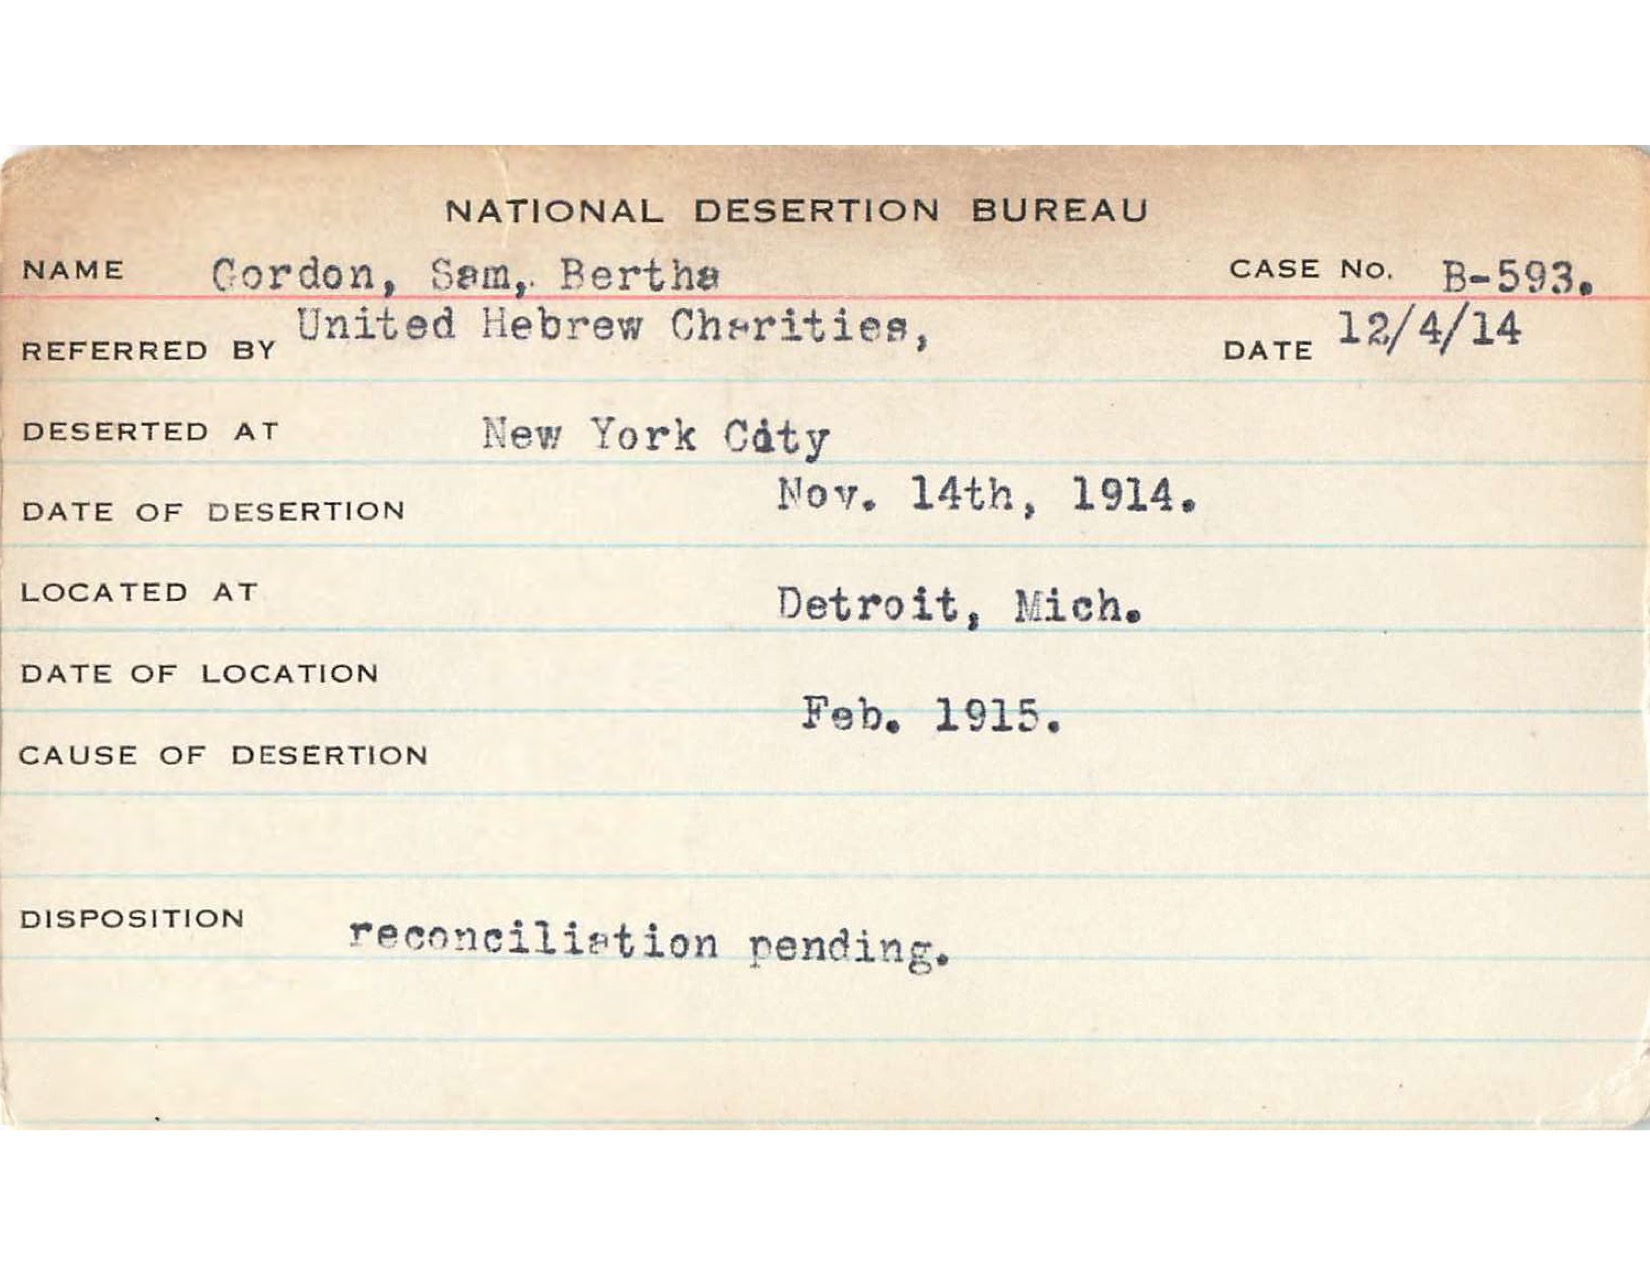 NATIONAL DESERTION BUREAU
NAME Gordon, Sam, Bertha CASE No. B-593.
REFERRED BY United Hebrew Charities, DATE 12/4/14
DESERTED AT New York City
DATE OF DESERTION Nov. 14th, 1914.
LOCATED AT Detroit, Mich.
DATE OF LOCATION
Feb. 1915.
CAUSE OF DESERTION
DISPOSITION reconciliation pending.